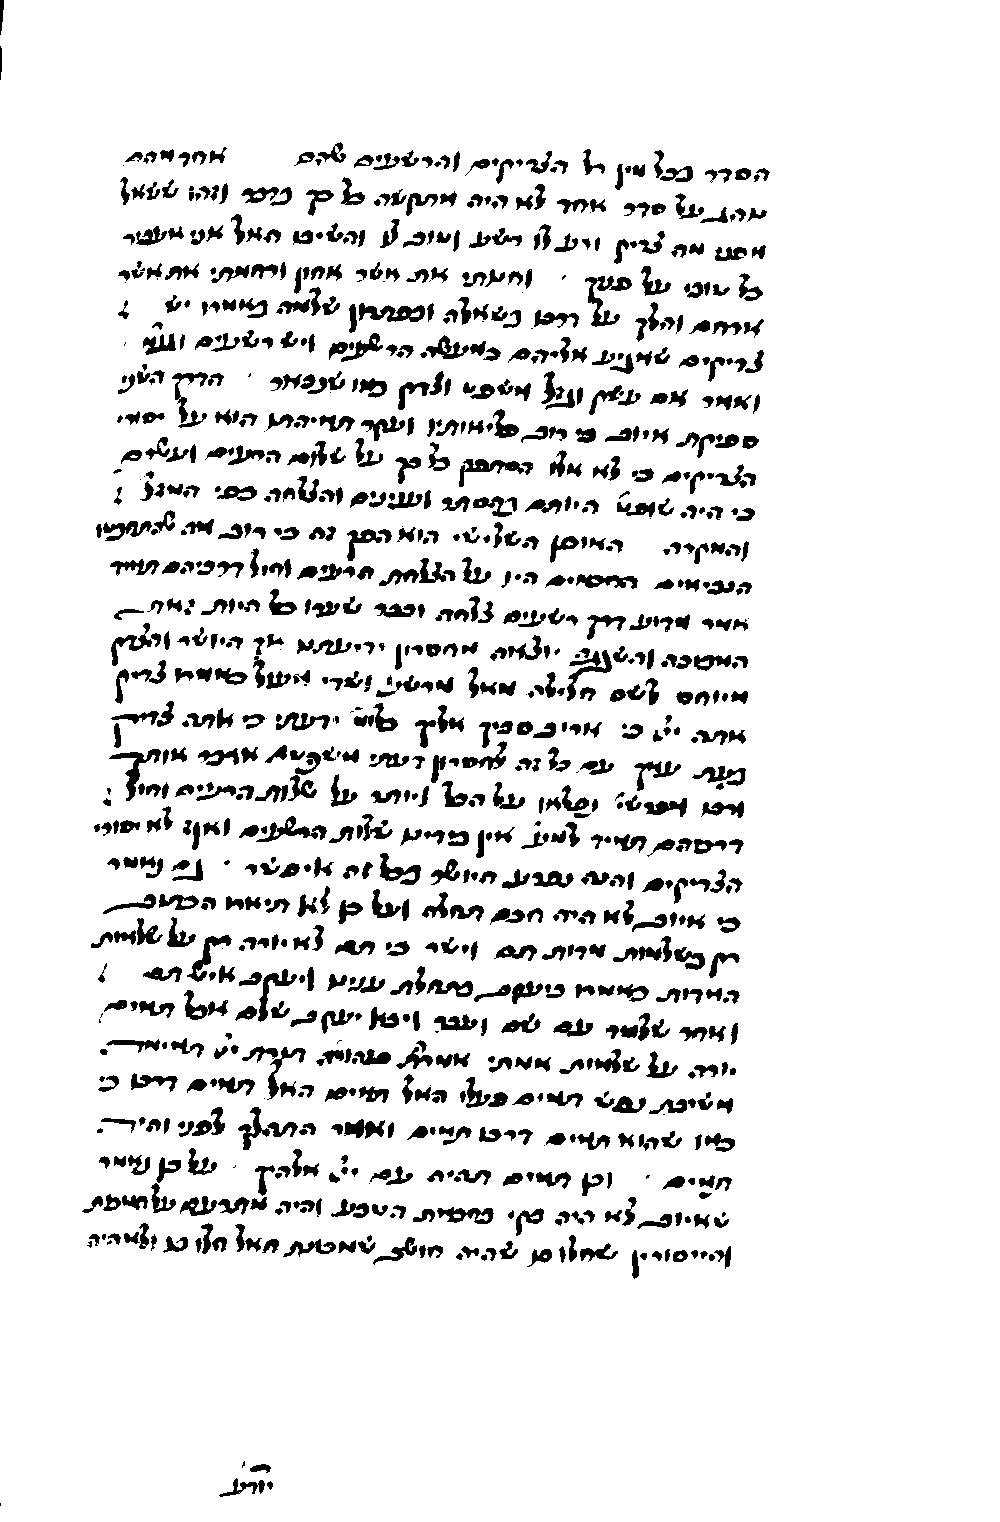 הסדר בכל מין כל הצדיקים והרשעים שהם אחר מהם
מהג על סדר אחד לא היה מתקשה כל כך בדבר וזהו ששאל
ממנו מה צדיק ורע לו רשע וטוב לו והשיבו האל אני אעביר
כל טובי על פניך וחנותי את אשר אחון ורחמתי את אשר
ארחם והלך על דרכו בשאלה ובפתרון שלמה באמרו יש
צדיקים שמגיע אליהם כמעשה הרשעים ויש רשעים וגו'
ואמר אם עשק וגזל משפט וצדק כמו שנבאר הדרך השני
ספיקת איוב כי רוב תליאותיו ועקר תמיהתו הוא על יסורי
הצדיקים כי לא אלו הסתפק כל כך על שלות הרעים ועשים
כי היה שופט היותם וענינים והצלחה כפי המזל
והמקרה האופן השלישי הוא הפך זה כי רוב מה שהתרעמו
הנביאים החכמים היו על הצלחת הרעים וחול דרכיהם תמיד
אמר מדוע דרך רשעים צלחה וכבר שערו כל היות זאת
המבוכה והשגגה יוצאה מחסרון ידיעתם אך היושר והצדק
מיוחס לשם חלילה לאל מרשע ושדי מעול באמרו צדיק
אתה יי' כי אריב אליך כלו' ידעתי כי אתה צדיק
בעת עם כל זה לחסרון דעתי משפטים אדבר אותך
על הכל ויותר על שלות הרעים וחול
דרכיהם תמיד למע' אין מריע שלות הרשעים ואין לא יסורי
הצדיקים והנה נמנע היושר בכל זה אי אפשר גם נאמר
כי איוב לא היה חכם תחלה ועל כן לא תיארו הכתוב
רק בשלמות מדות תם וישר כי תם לא יורה רק על שלמות
המדות באמרו ביעקב בתחלת ענינו ויעקב איש תם
ואחר שלמד עם שם ועבר ויבא יעקב שלם אבל תמים
יורה על שלמות אמתי אמרת תורת יי' תמימה
משיבת נפש תמים פעלו האל תמים האל תמים דרכו כי
כמו שהוא תמים דרכו תמים ואמר התהלך לפני והיה
תמים וכן תמים תהיה עם יי' אלהיך על כן נאמר
שאיוב לא היה בקי בחכמת הטבע והיה מתרעם על
והייסורין שחלו בו שהיה חושב שמטעות האל חלו בו ולא היה
יודע